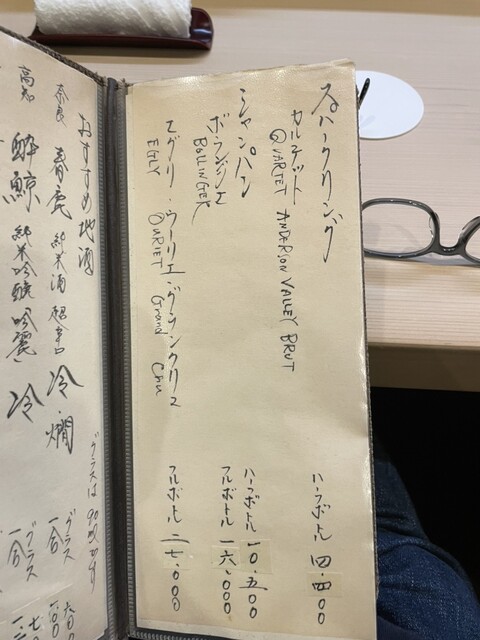 スパークリング
カルテット
QUARTET ANDERSON VALLEY BRUT
ハーフボトル 四.四00
シャンパン
ボランジェ
BOLLINGER
ハーフボトル 一0.五00
フルボトル 一六.000
エグリ・ウーリエ・グランクリュ
EGLY OURIET Grand Cru
フルボトル 二七.000
おすすめ地酒
グラスは90ml
奈良 春鹿 純米酒 超辛口 冷・燗
グラス
一合
高知 酔鯨 純米吟醸 吟麗 冷
グラス
一合